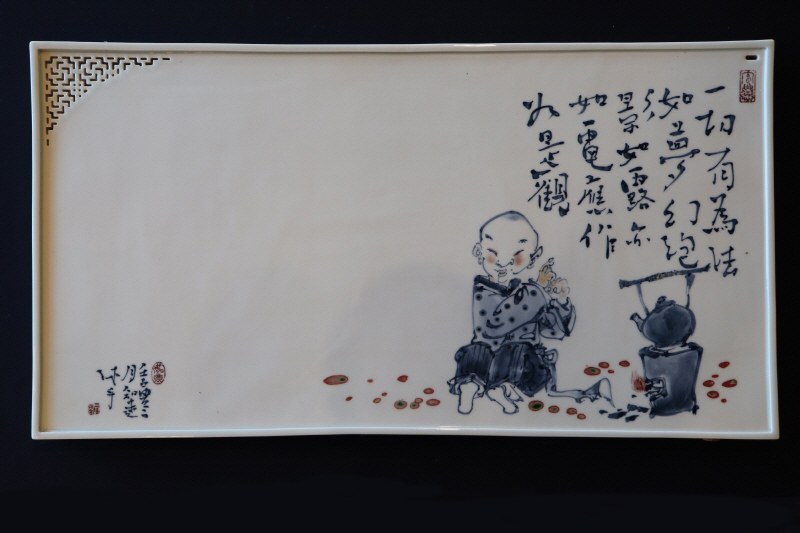 一切有為法
如夢幻泡
影如露亦
如電應作
如是觀